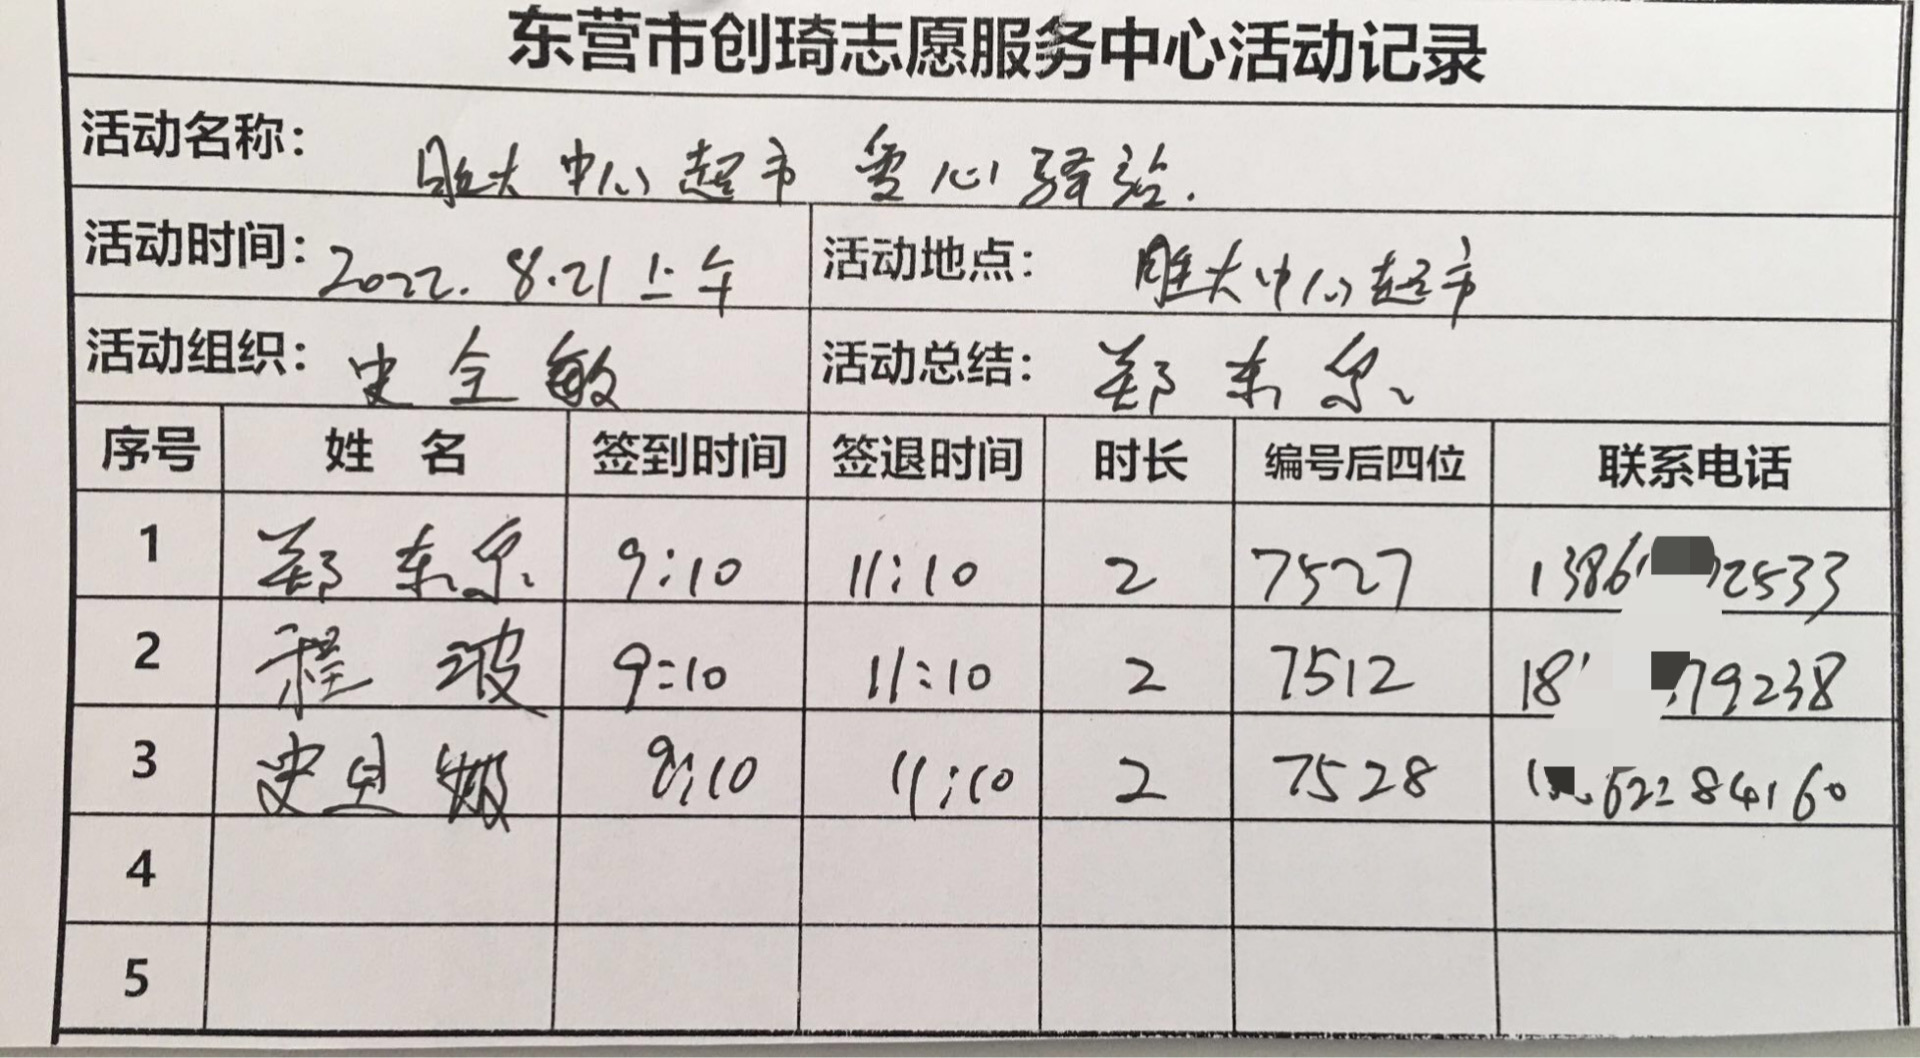 东营市创琦志愿服务中心活动记录
活动名称： 胜大中心超市 爱心驿站.
活动时间： 2022. 8.21 上午 活动地点： 胜大中心超市
活动组织： 史全敏 活动总结： 郑东泉
序号 姓 名 签到时间 签退时间 时长 编号后四位 联系电话
1 郑东泉 9:10 11:10 2 7527 1386 2533
2 程波 9:10 11:10 2 7512 18 79238
3 史 娜 9:10 11:10 2 7528 1 62284160
4
5